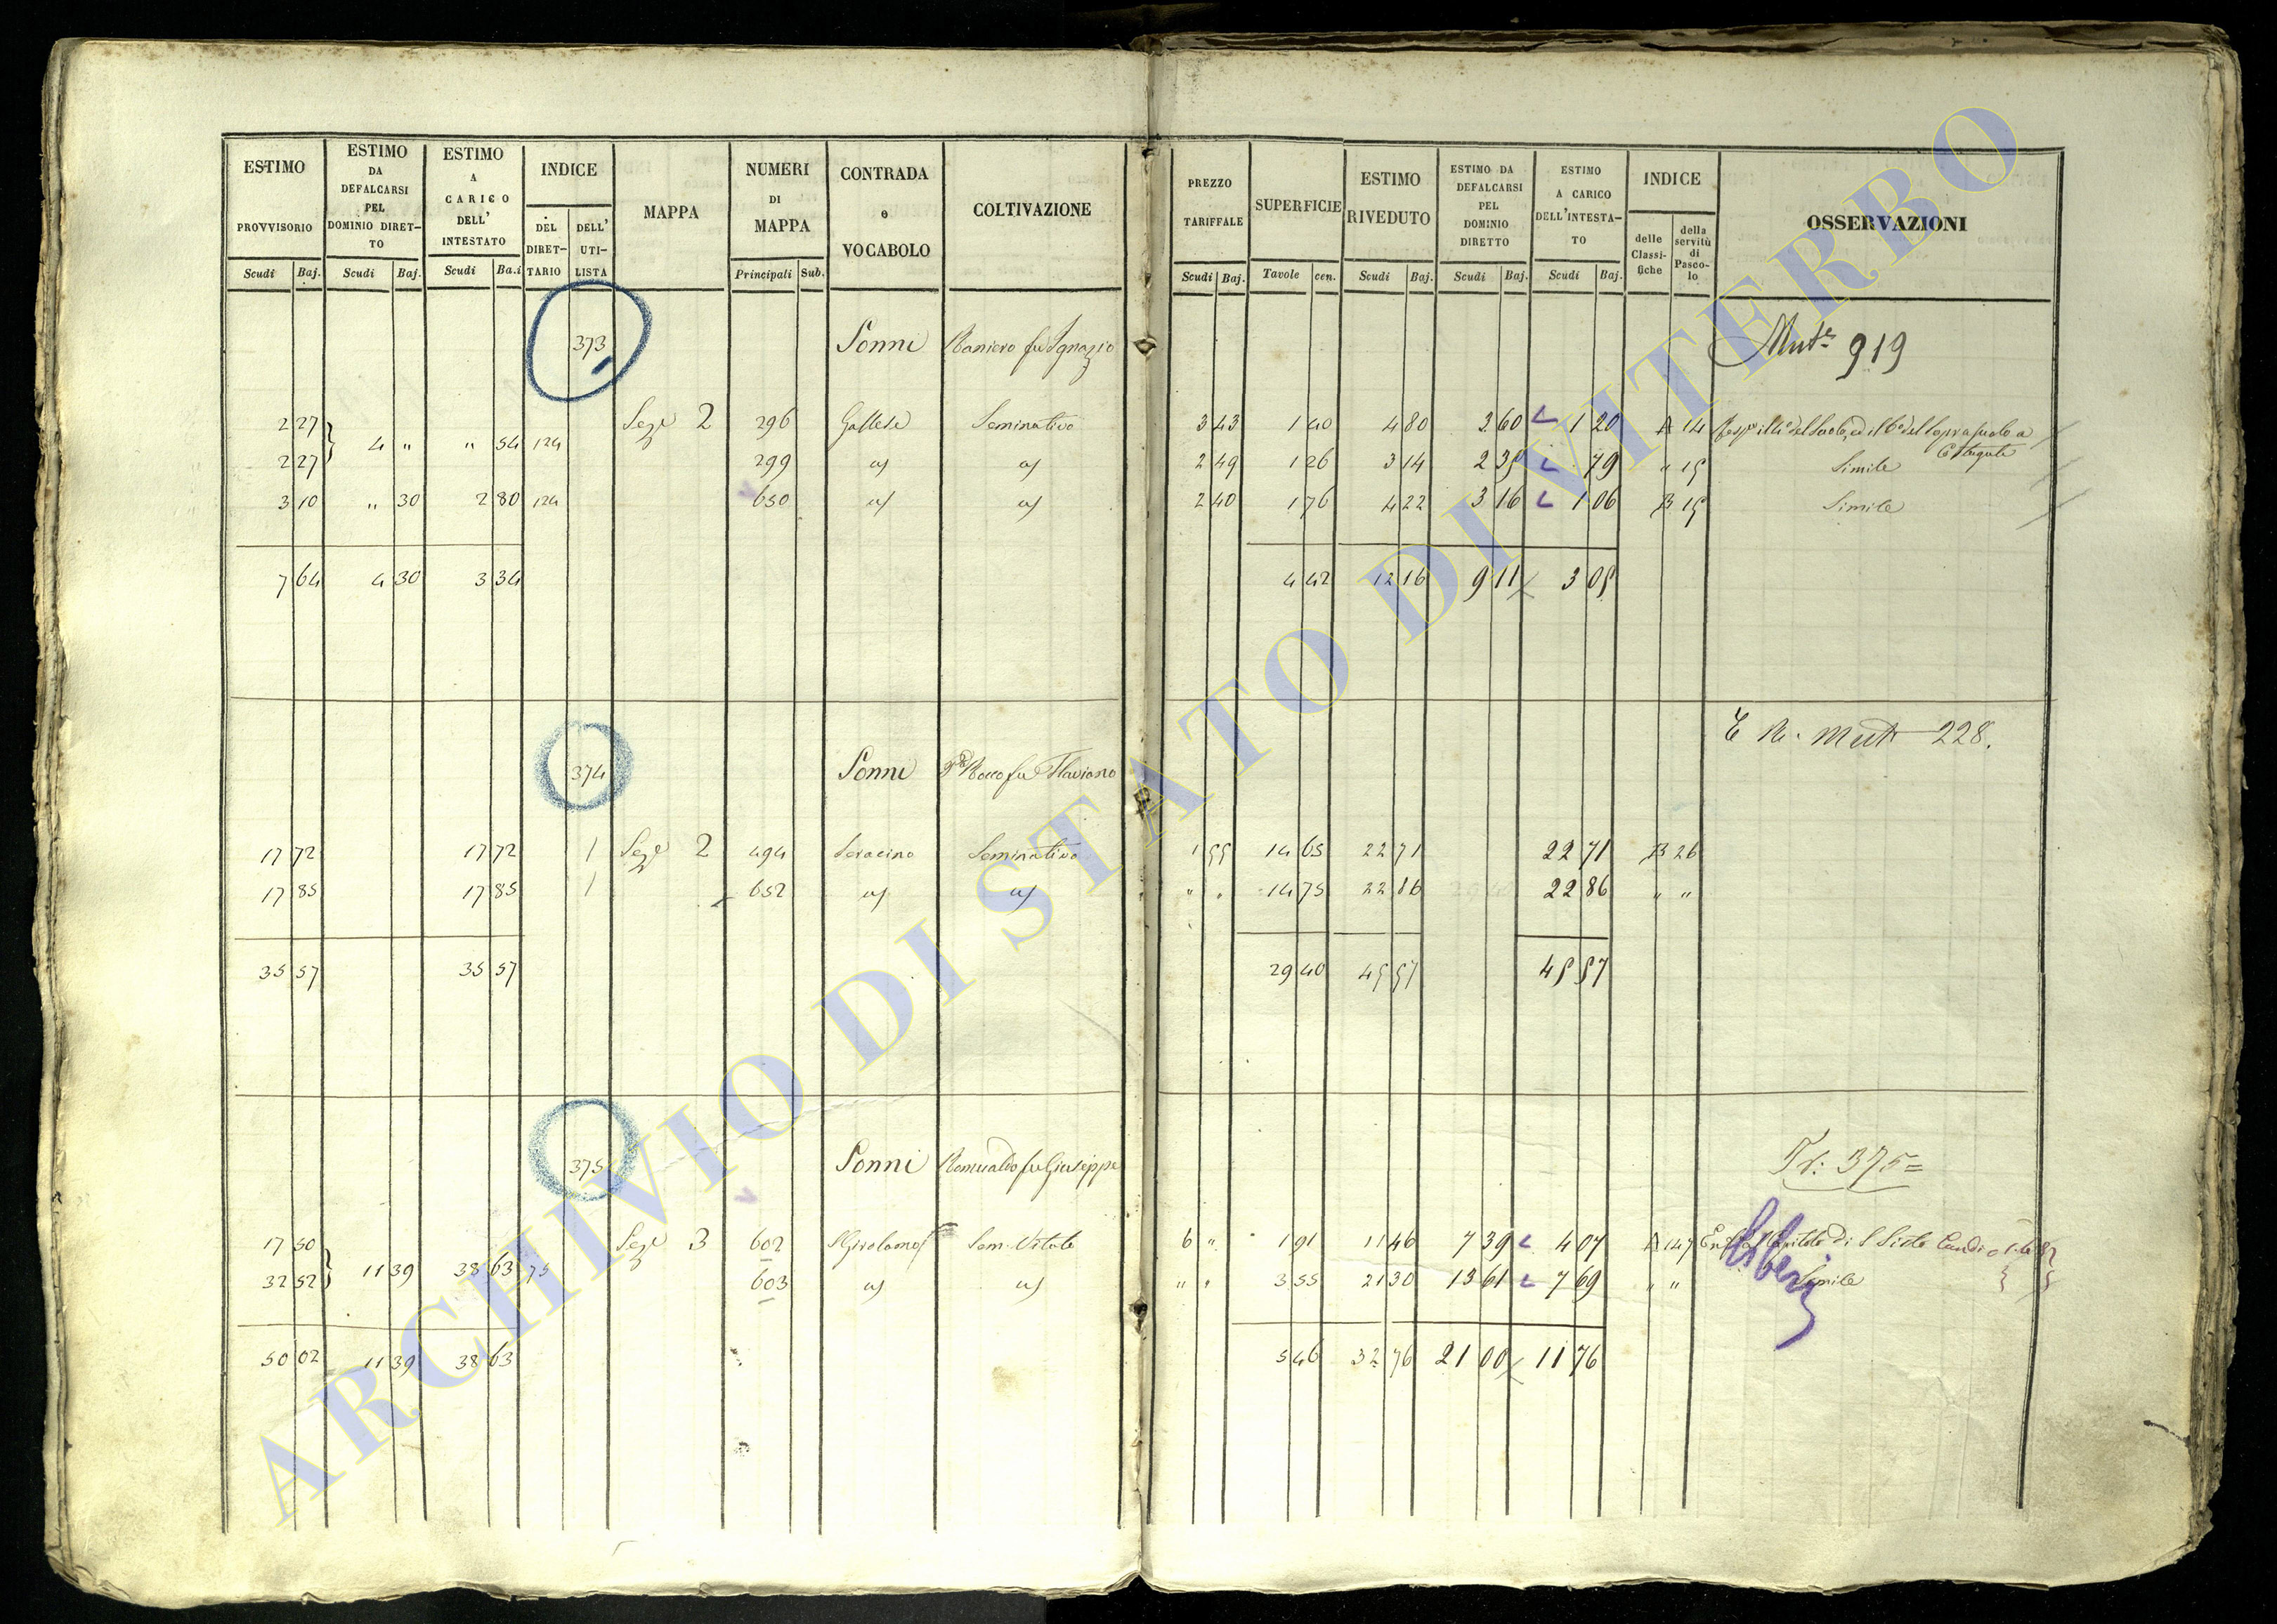 ESTIMO PROVVISORIO Scudi Baj.
ESTIMO DA DEFALCARSI PEL DOMINIO DIRETTO Scudi Baj.
ESTIMO A CARICO DELL' INTESTATO Scudi Ba.i
INDICE DEL DIRETTARIO DELL' UTILISTA
MAPPA
NUMERI DI MAPPA Principali Sub.
CONTRADA o VOCABOLO
COLTIVAZIONE
PREZZO TARIFFALE Scudi Baj.
SUPERFICIE Tavole cen.
ESTIMO RIVEDUTO Scudi Baj.
ESTIMO DA DEFALCARSI PEL DOMINIO DIRETTO Scudi Baj.
ESTIMO A CARICO DELL'INTESTATO Scudi Baj.
INDICE delle Classifiche della servitù di Pascolo
OSSERVAZIONI
373 Sonni Raniero fu Ignazio Mut. 919
2 27 4 " " 54 124 Sez. 2 296 Gallese Seminativo 3 43 1 40 4 80 3 60 1 20 A 14
2 27 299 2 49 1 26 3 14 2 35 79 " 15 Simile
3 10 " 30 2 80 124 650 2 40 1 76 4 22 3 16 1 06 B 15 Simile
7 64 4 30 3 34 4 42 12 16 9 11 3 05
374 Sonni Rocco fu Flaviano Mut 228.
17 72 17 72 1 Sez. 2 494 Seracino Seminativo 1 55 14 65 22 71 22 71 B 26
17 85 17 85 1 652 " " 14 75 22 86 22 86 " "
35 57 35 57 29 40 45 57 45 57
375 Sonni Romualdo fu Giuseppe 375=
17 50 11 39 38 63 75 Sez. 3 602 S Girolamo Sem. Vitato 6 " 1 91 11 46 7 39 4 07 A 147 Capitolo di S Sisto
32 52 603 " " 3 55 21 30 13 61 7 69 " " Simile
50 02 11 39 38 63 5 46 32 76 21 00 11 76
ARCHIVIO DI STATO DI VITERBO